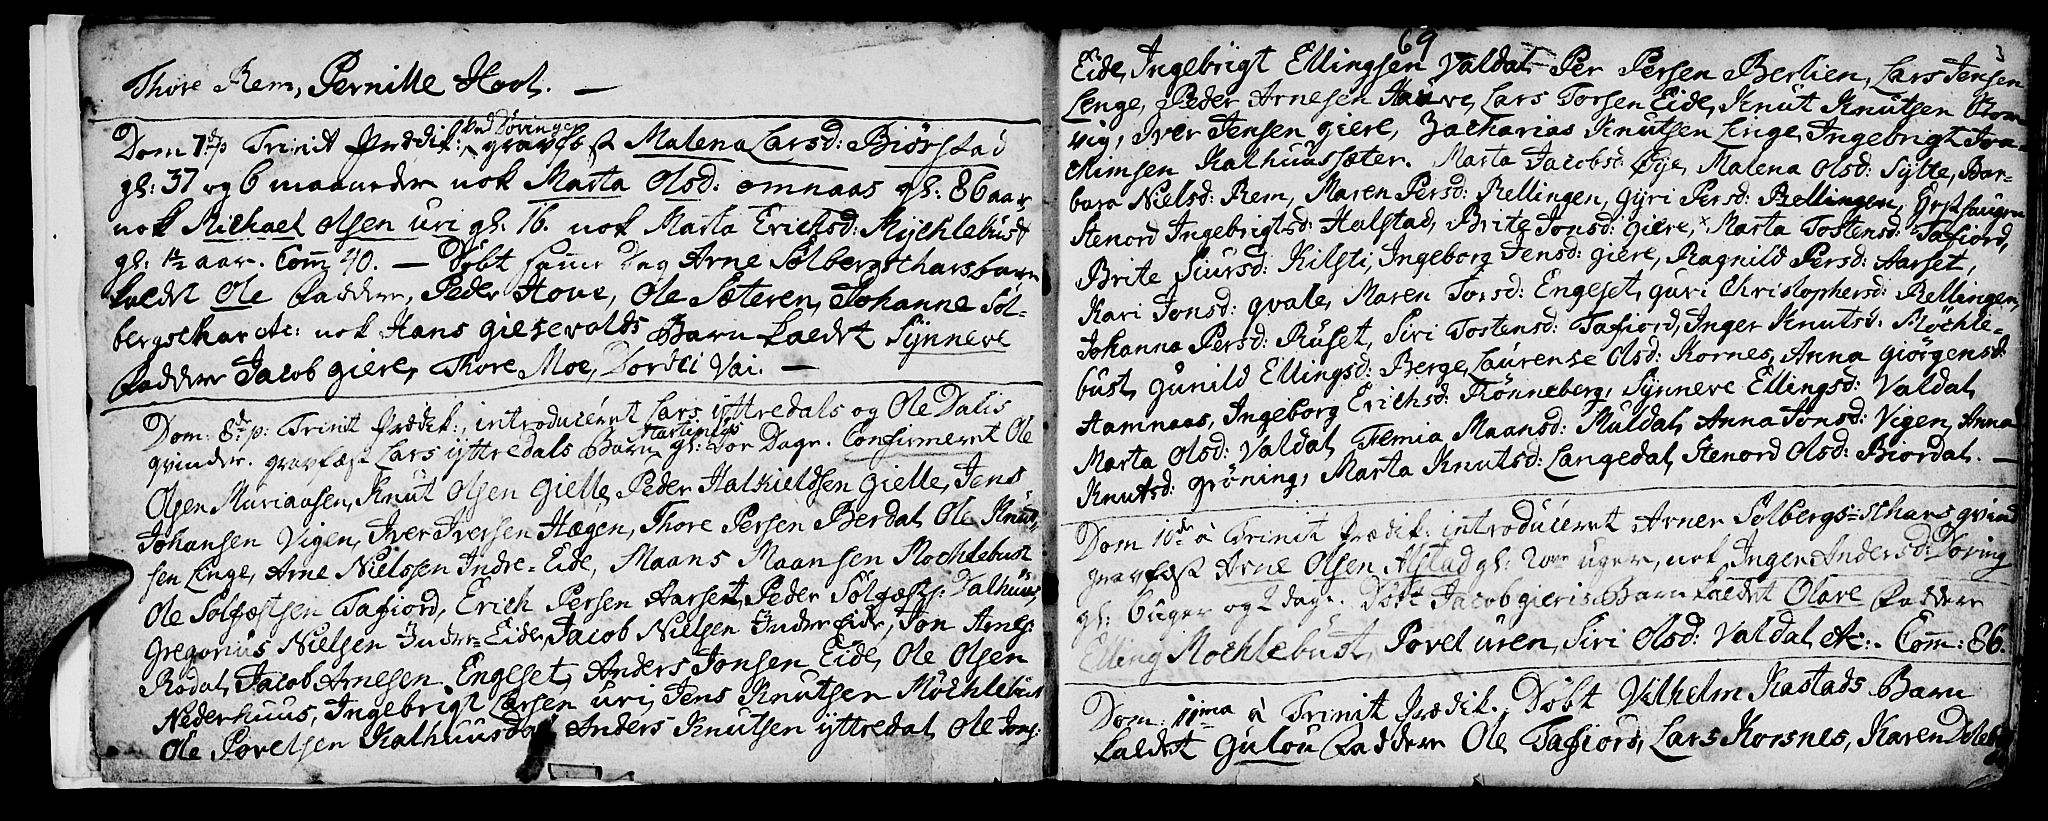 Thore Rem, Pernille Hool. —
Dom 7de p Trinit Prædik: ved Døvingen
gravfæst Malena Larsd: Biørstad
gl: 37 og 6 maaneder nok Marta Olsd: omnaas gl: 86 aar
nok Michael Olsen uri gl: 16. nok Marta Erichsd: Mychlebust
gl: 1½ aar. Com 40. — Døbt samme Dag Arne Sølbergscharsbarn
kaldt Ole Faddere, Peder Hove, Ole Sæteren, Johanne Søl-
bergschar etc: nok Hans giesevolds Barn kaldt Synneve
Faddere Jacob giere, Thore Moe, Dordei Vai. —
Dom: 8de p: Trinit Prædik:, introduceret Lars yttredals og Ole Dalis
qvinder. gravfæst Lars yttredals Barn Martinus gl: For Dage. Confirmeret Ole
Olsen Muriaasen, Knut Olsen Gielle, Peder Halkieldsen Gielle, Jens
Johansen Vigen, Iver Iversen Hægen, Thore Persen Berdal, Ole Knut-
sen Linge, Arne Nielssen Indre-Eide, Maans Maansen Mochlebust
Ole Solfæstsen Tafiord, Erich Persen Aarset, Peder Solfæsts: Dalhuus,
Gregorius Nielsen Indre-Eide, Jacob Nielsen Indre Eide, Jon Arnes:
Rødal, Jacob Arnesen Engeset, Anders Jonsen Eide, Ole Olsen
Nederhuus, Ingebrigt Larsen uri, Jens Knutsen Möchlebust
Ole Povelsen Kalhuusdal Anders Knutsen yttredal, Ole Jens:
69
Eide, Ingebrigt Ellingsen Valdal Per Persen Berlien, Lars Jensen
Linge, Peder Arnesen Hauve, Lars Torsen Eide, Knut Knutsen
vig, Iver Jensen giere, Zacharias Knutsen Linge, Ingebrigt Joa-
chimsen Kalhuussæter. Marta Jacobsd: Øye, Malena Olsd: Sylte, Bar-
bara Nielsd: Rem, Maren Persd: Rellingen, Gyri Persd: Rellingen,
Stenord Ingebrigtsd: Halstad, Brite Jonsd: giere, Marta Tostensd: Tafiord,
Brite Siursd: Kilsti, Ingeborg Jensd: giere, Ragnild Persd: Aarset,
Kari Jonsd: qvale, Maren Torsd: Engeset, guri Christophersd: Rellingen,
Johanna Persd: Ruset, Siri Tostensd: Tafiord, Inger Knutsd: Möchle-
bust, Gunild Ellingsd: Berge, Laurense Olsd: Kornes, Anna giørgensd:
Hamnaas, Ingeborg Erichsd: Rønneberg, Synneve Ellingsd: Valdal,
Marta Olsd: Valdal Femia Maansd: Muldal, Anna Jonsd: Vigen, Anna
Knutsd: grøning, Marta Knutsd: Langedal, Stenord Olsd: Biordal. —
Dom 10de à Trinit Prædik: introduceret Arner Sølbergs-schars qvind
gravfæst Arne Olsen Alstad gl: 2 uger, nok, Inger Andersd: Døving
gl: 6 uger og 2 dage. Døbt Jacob gieris Barn kaldet Olave Faddere
Elling Mochlebust, Povel uren, Siri Olsd: Valdal etc: Com: 86.
Dom. 11ma à Trinit Prædik. Døbt Vilhelm Kastads Barn
kaldet Gulou Faddere Ole Tafiord, Lars Korsnes, Karen